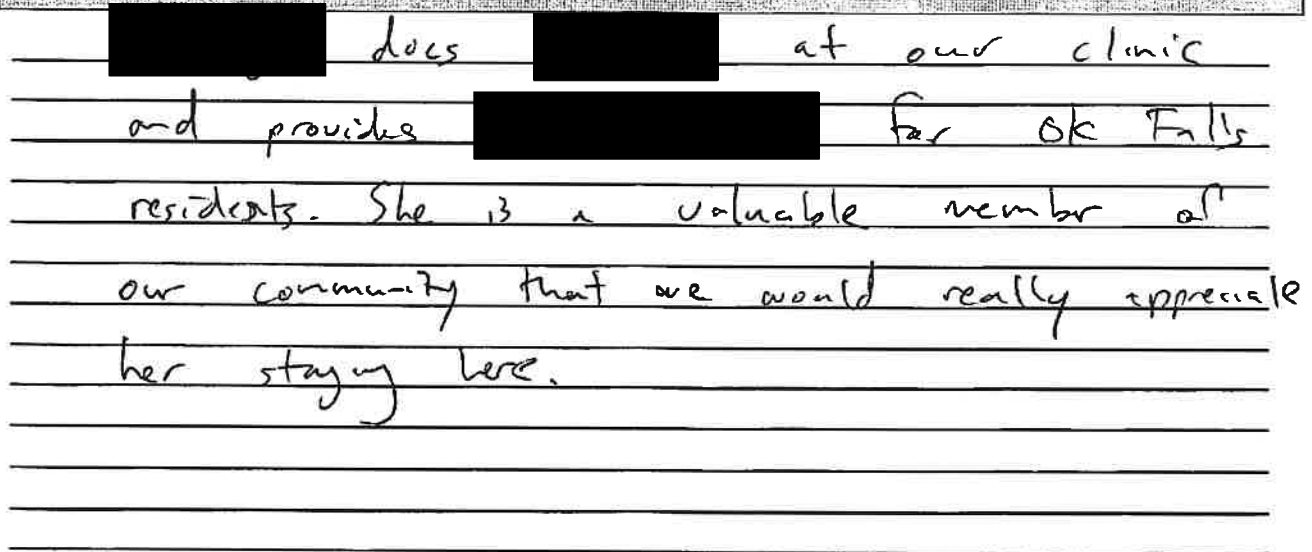 does at our clinic
and provides for OK Falls
residents. She is a valuable member of
our community that we would really appreciate
her staying here.